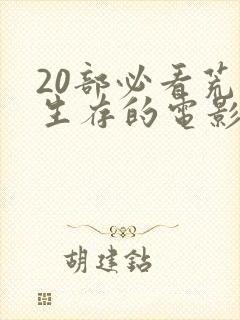 20部必看荒
生存的电影
胡建鈷